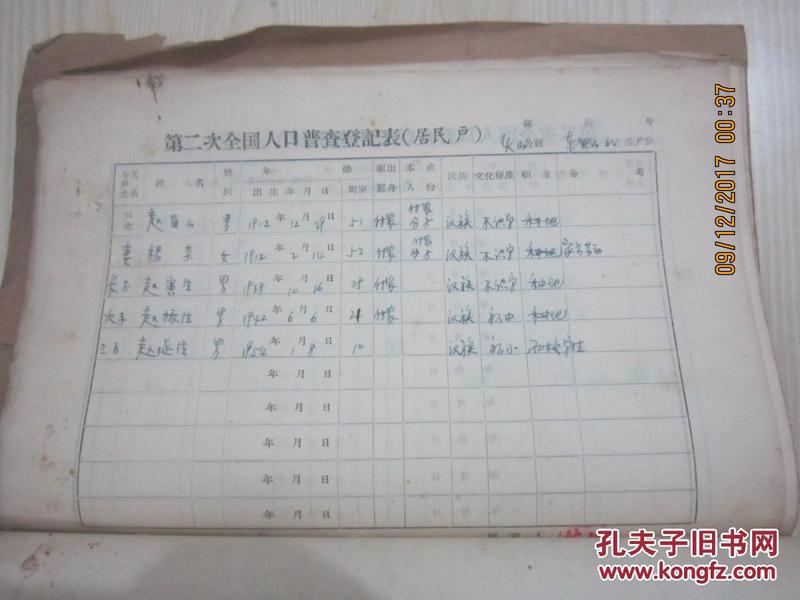 第二次全国人口普查登記表(居民户)
公社 生产队
与户主关系 姓名 性别 年龄 出生年月日 周岁 家庭出身 本人成份 民族 文化程度 职业 备考
户主 赵 男 1912年12月29日 51 贫农 贫农 汉族 不识字 种地
妻 杨 女 1912年2月14日 52 贫农 贫农 汉族 不识字 种地 家务劳动
长子 赵寅生 男 1938年10月26日 25 贫农 汉族 不识字 种地
次子 赵 生 男 1942年6月6日 21 贫农 汉族 初中 种地
三子 赵 生 男 1954年1月8日 10 汉族 初小 在校学生
年 月 日
年 月 日
年 月 日
年 月 日
年 月 日
09/12/2017 00:37
孔夫子旧书网
www.kongfz.com